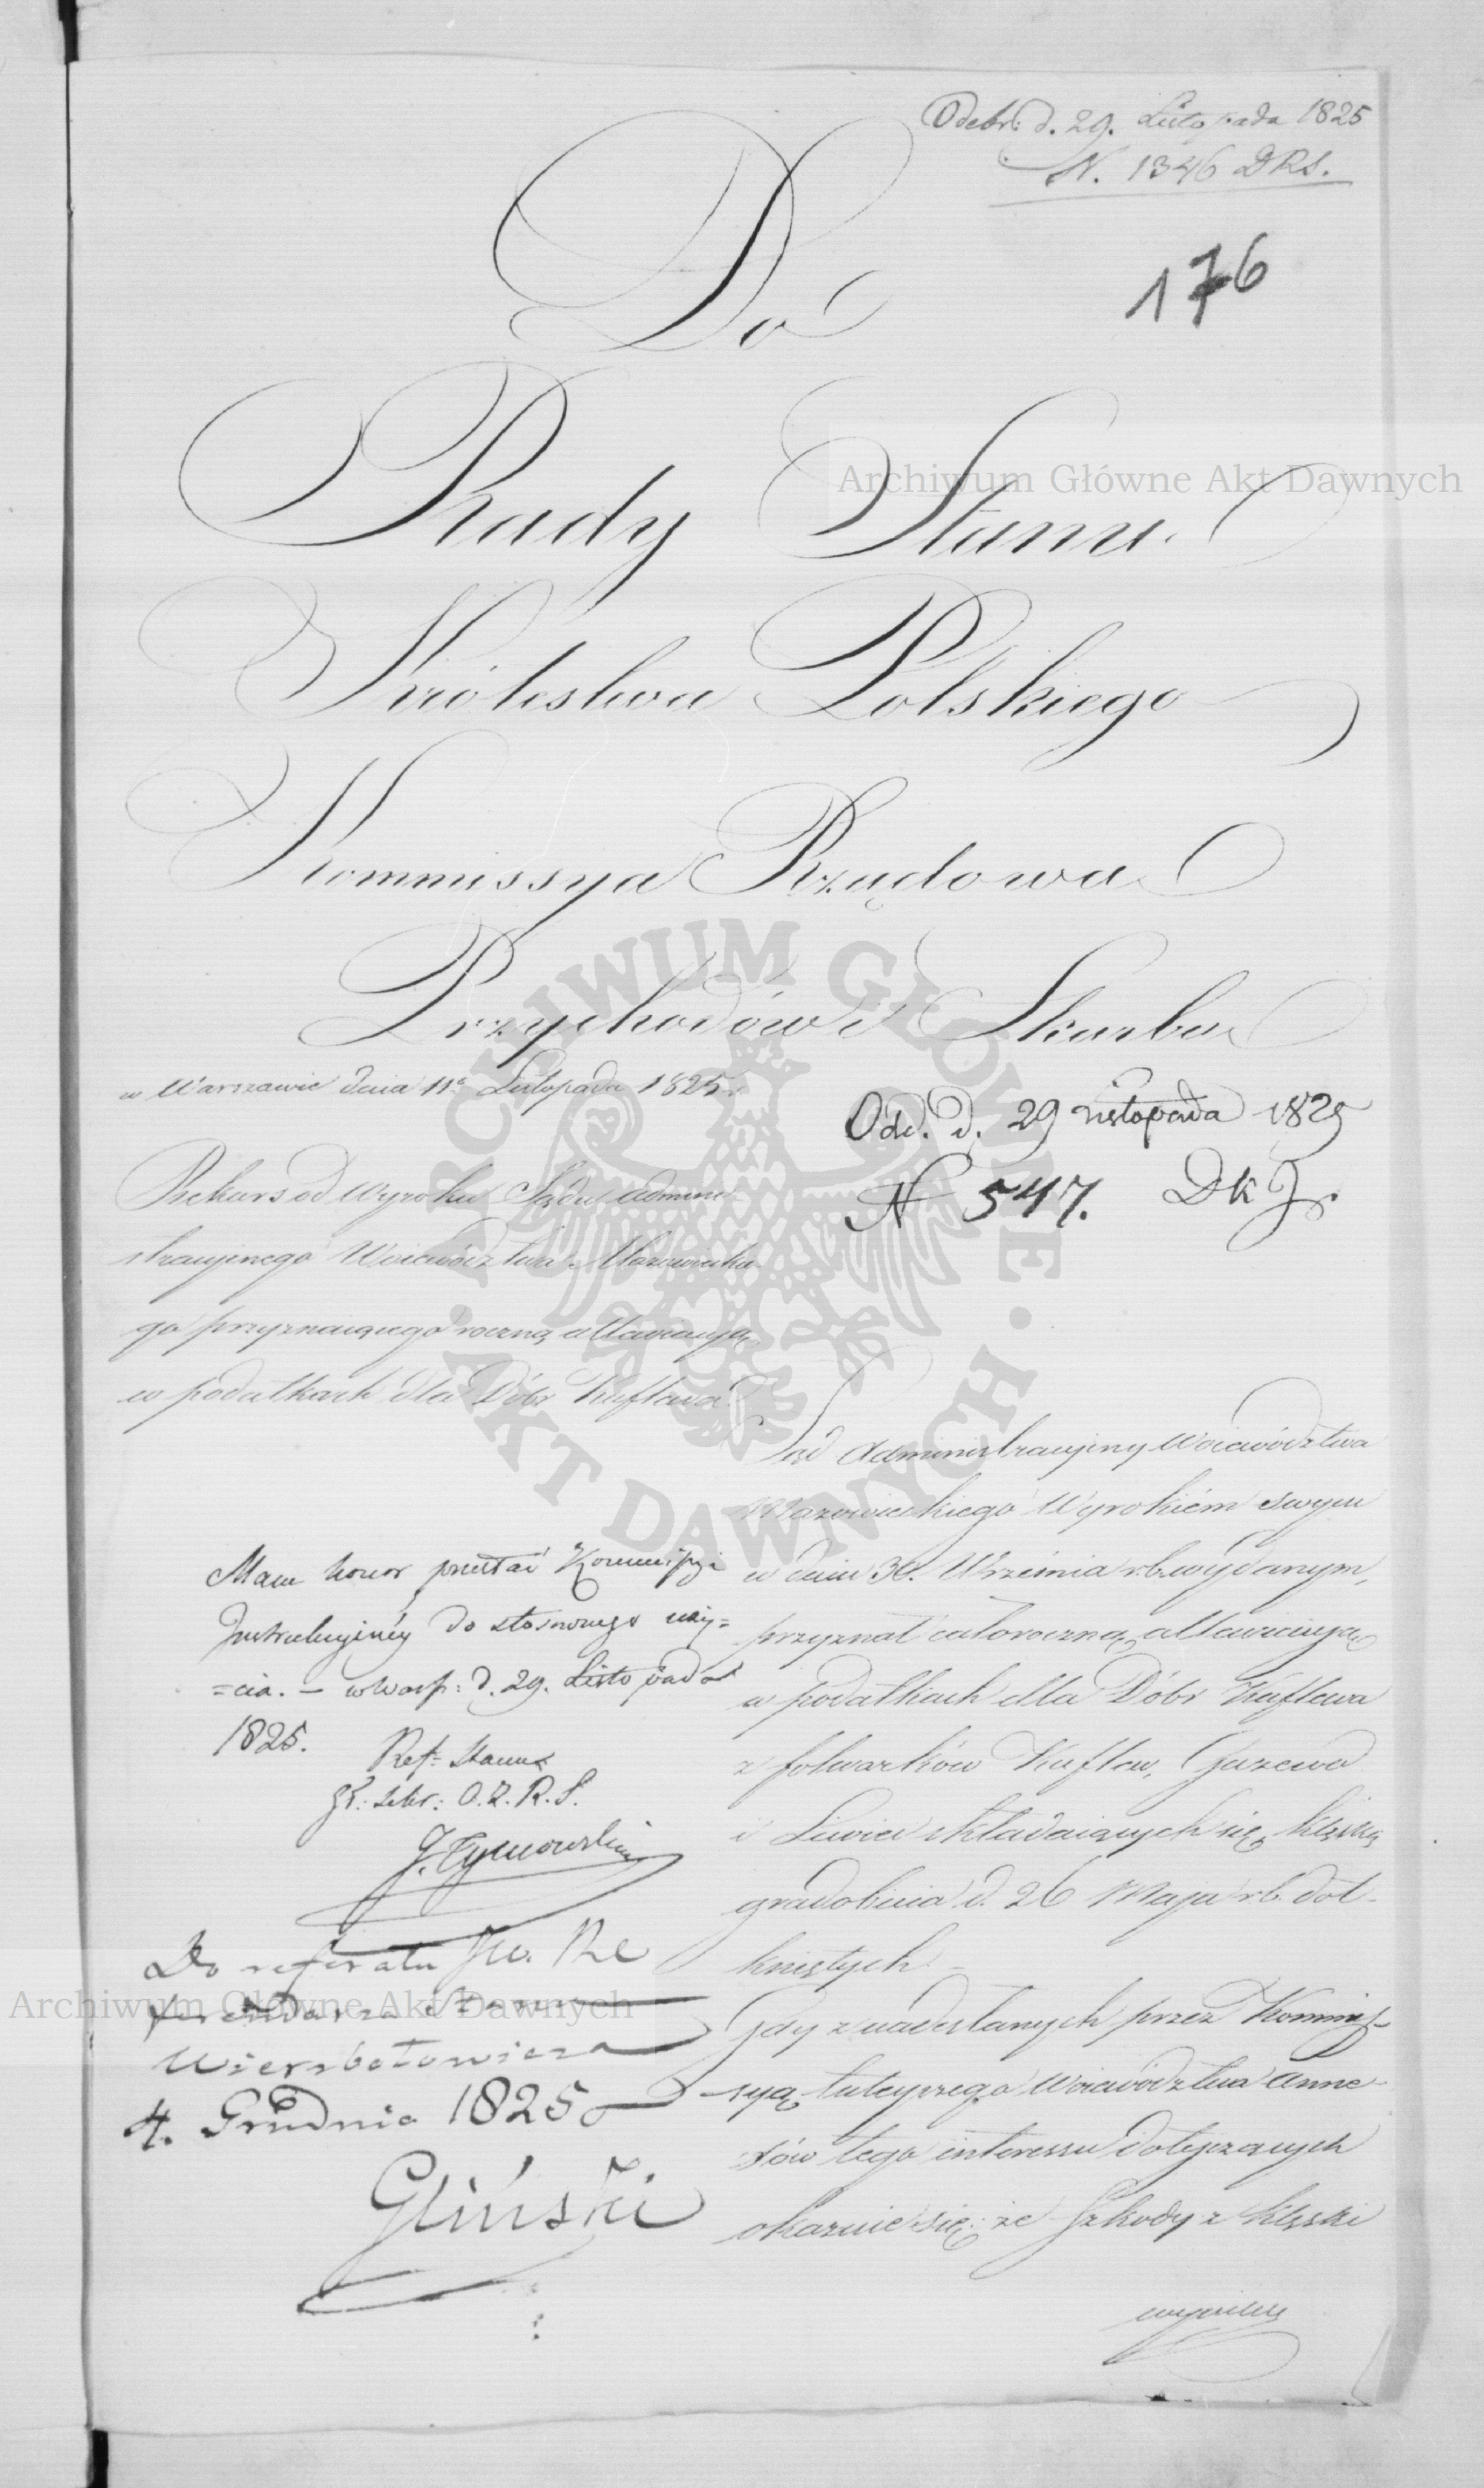 Odebr: d. 29. Listopada 1825
N. 1346 DRS.
176
Do
Rady Stanu
Królestwa Polskiego
Kommissya Rządowa
Przychodów i Skarbu
w Warszawie dnia 11º Listopada 1825 r.
Odd. d. 29 Listopada 1825
N 547. DKJ.
Rekurs od Wyroku Sądu admini-
stracyjnego Woiewództwa Mazowieckie-
go przyznaiącego roczną allewiacyą
w podatkach dla Dóbr Kuflewa
Sąd Administracyjny Woiewództwa
Mazowieckiego Wyrokiem swym
w dniu 30. Września r.b. wydanym,
przyznał całoroczną allewiacyą
w podatkach dla Dóbr Kuflewa
z folwarków Kuflew, Guzewo
i Liwiec składaiących się, klęską
gradobicia d. 26 Maja r.b. dot-
kniętych. –
Gdy z nadesłanych przez Kommis-
syą tuteyszego Woiewództwa Anne-
xów tego interessu dotyczących
okazuie się: że Szkody z klęski
wynikłe
Mam honor przesłać Kommissyi
Instrukcyjnéy do stosownego uży=
=cia. – w Warsz: d. 29. Listopada
1825.
Ref: Stanu
Zł: Sekr: O.Z.R.S.
J. Tymowski
Do referatu JW. Re
ferendarza Stanu
Wierzbołowicza
4. Grudnia 1825
Gliński
Archiwum Główne Akt Dawnych
ARCHIWUM GŁÓWNE • AKT DAWNYCH •
Archiwum Główne Akt Dawnych